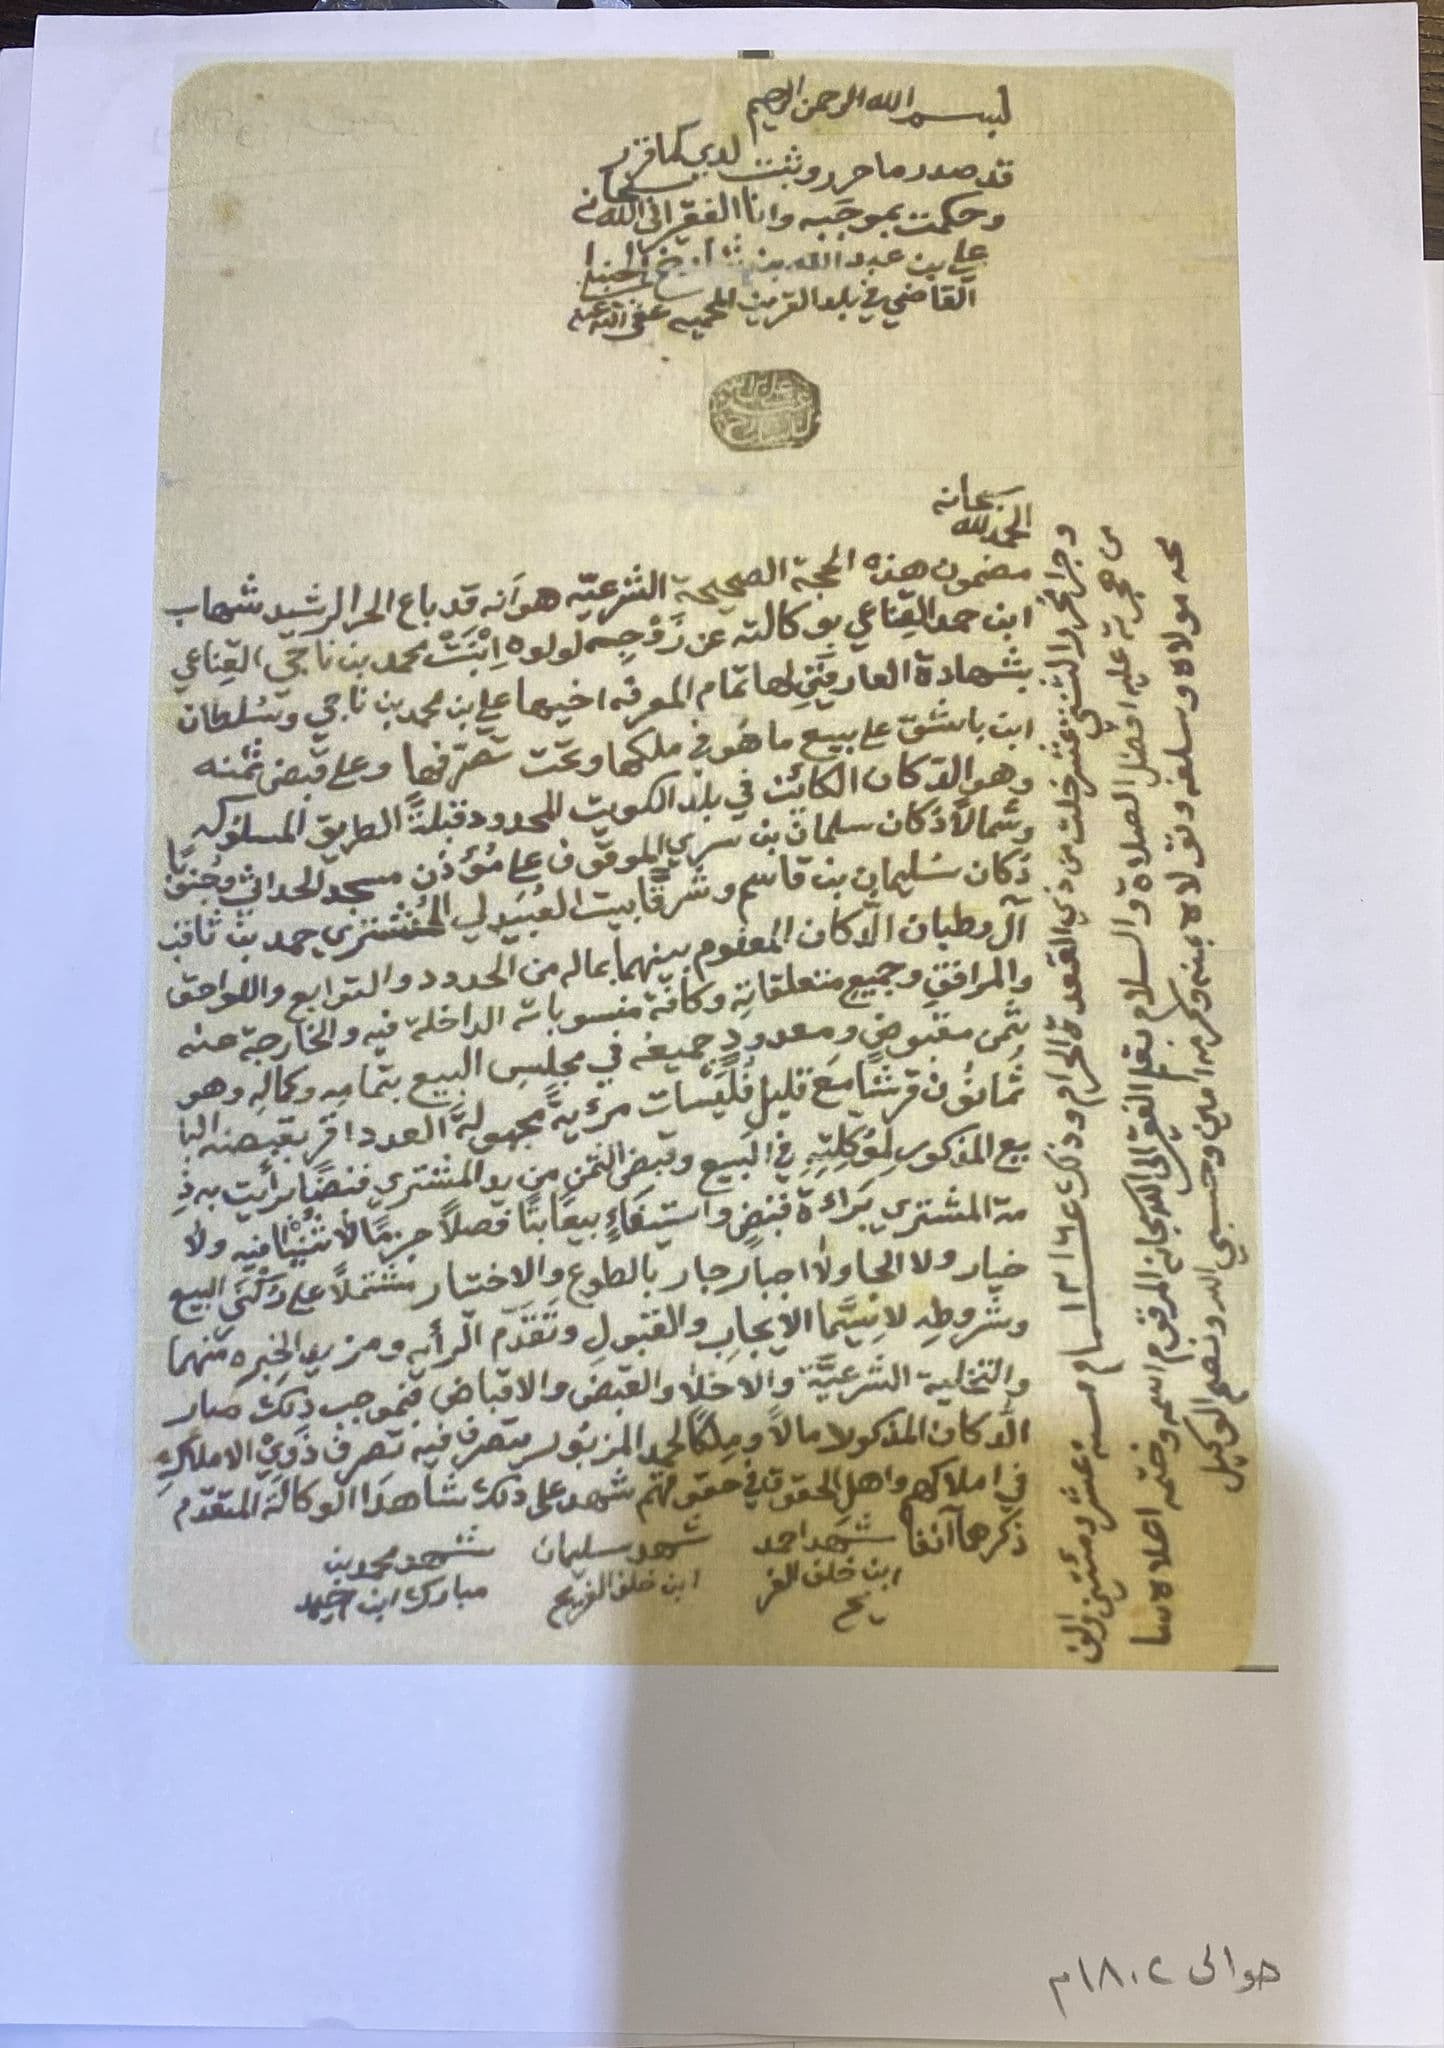 بسم الله الرحمن الرحيم
قد صدر ما حرر وثبت لدي كما قرر
وحكمت بموجبه وانا الفقير الى الله سبحانه
علي بن عبد الله بن شارخ الحنبلي
القاضي في بلد القرين المحميه عفى الله عنه
الحمد لله سبحانه
مضمون هذه الحجة الصحيحة الشرعيّه هو أنه قد باع الحر الرشيد شهاب
ابن حمد القناعي بوكالته عن زَوْجِه لولوه اِبْنَتْ محمد بن ناجي القناعي
بشهادة العارفَيْنِ لها تمام المعرفه اخيها علي بن محمد بن ناجي وسُلطان
ابن باشق على بيع ما هُو في ملكها وتحت تصرّفها وعلى قبض ثمنه
وهو الدّكان الكائن في بلد الكويت المحدود قبلةً الطريق المسلوك
وشمالاً دكان سلمان بن سري الموقوف على مُؤذن مسجد الحداثي وجُنوبًا
دكان سُليمان بن قاسم وشرقًا بيت العُبيدلي المُشتري حمد بن ثاقب
آل وطبان الدكان المعلوم بينهما بماله من الحدود والتوابع واللواحق
والمرافقِ وجميعِ متعلقاتِهِ وكافّة منسوباته الداخلة فيه والخارجة عنه
بثمن مقبوضٍ ومعدودٍ جميعُه في مجلسِ البيع بتمامِهِ وكمالِهِ وهو
ثمانُون قرشًا مَعَ قليلِ فُلَيْسات مرئيةً مجهولة العدد اقر بقبضه البا
يع المذكور لِمُوَكِلتِهِ في البَيع وقبض الثمن من يد المشتري قبضًا برأت به ذِ
مة المشتري بَرَاءَة قبضٍ واستيفاءٍ بيعًا بتًا فصلاً جزمًا لا ثُنْيَا فيه ولا
خيار ولا الجا ولا اجبار جار بالطوع والاختيار مشتملاً على رُكْنَي البيع
وشروطِهِ لا سِيَّما الايجابِ والقبولِ وتَقَدّم الرأيه ومزيد الخبره منهما
والتخلية الشرعيَّة والاخلا والقبض والاقباض فبموجب ذلك صار
الدكان المذكور مالاً ومِلكًا لحمد المزبُور يتصرف فيه تصرف ذَوِيْ الاملاكِ
في املاكهم واهل الحقوق في حقوقهم شهد على ذلك شاهدَا الوكالة المتقدّم
ذكرهما آنفا
شهد احمد
ابن خلف الفر
يح
شهد سليمان
ابن خلف الفريح
شهد محمد بن
مبارك ابن
وجرا وحُرر الثنتي عشر خلت من ذي القعدة الحرام وذلك ١٢١٦ سنة عشر ومئتين والف
من هجرية عليه افضل الصلاة والسلام بقلم الفقير الى الله سبحانه المرقوم اسمه وختمه اعلاه سا
محه مولاه وسلفه وتولاه بمنه وكرمه امين وحسبي الله ونعم الوكيل
حوالى ١٨٠٢م